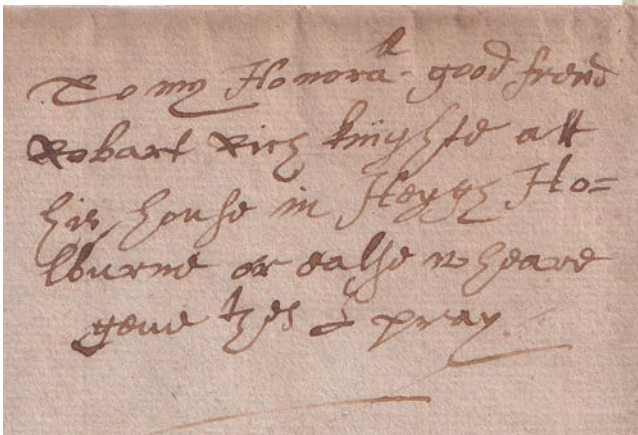 To my Honorall. good frend
Robart Rich knighte att
his house in Heygh Ho=
lburne or ealse wheare
geue thes I pray